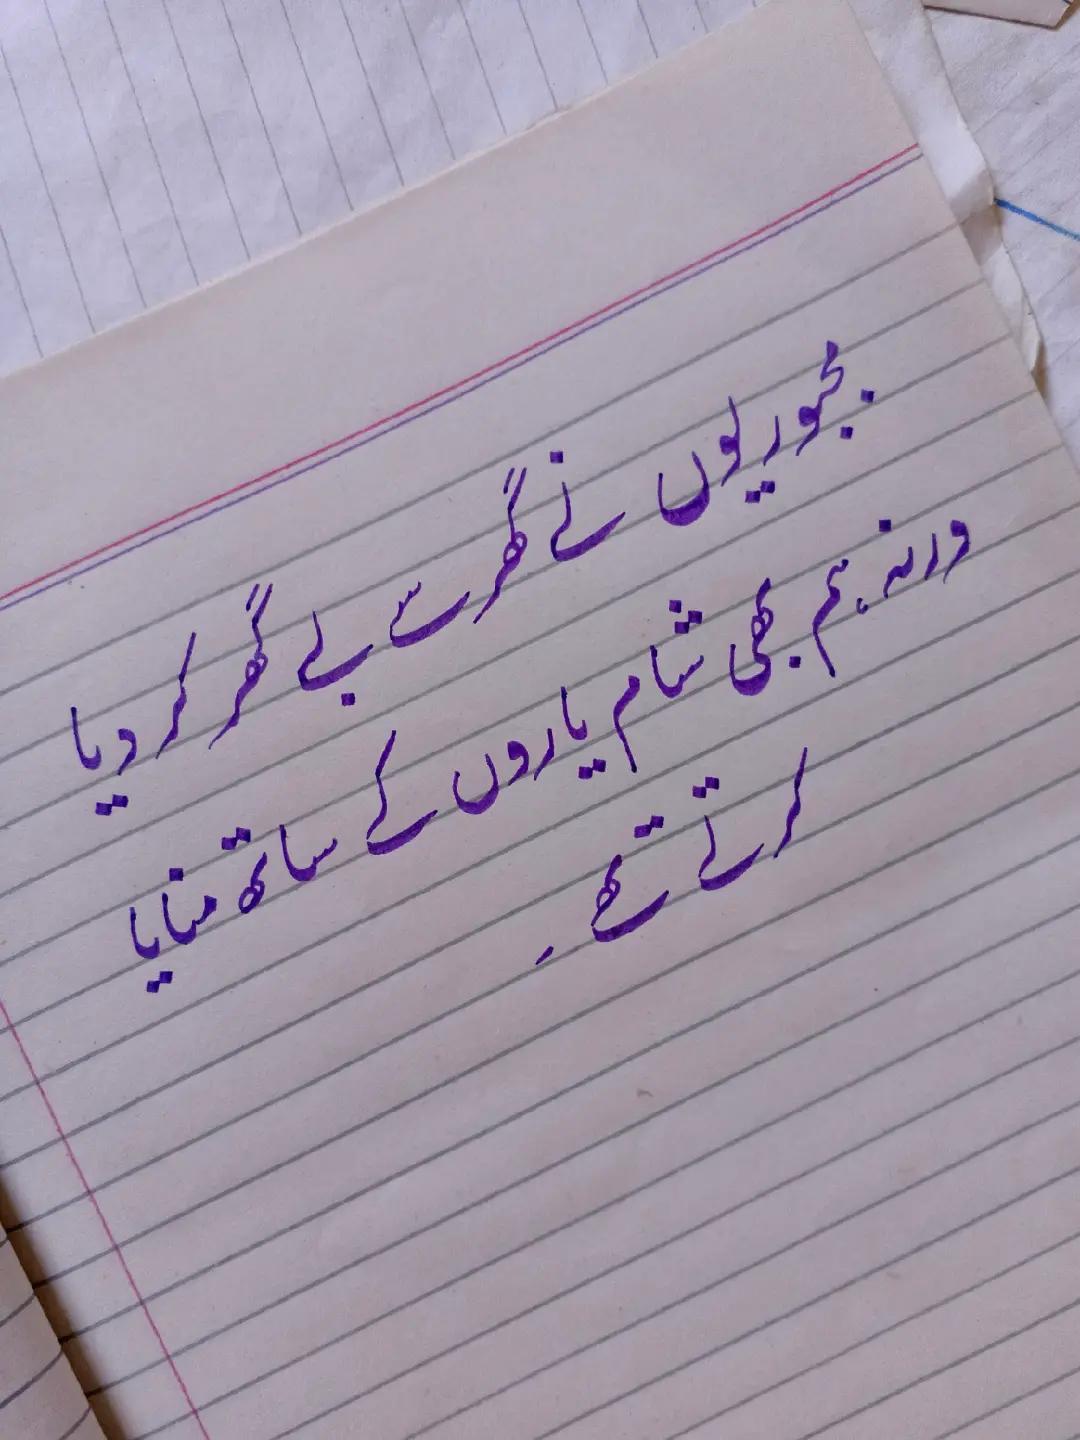 مجبوریوں نے گھر سے بے گھر کر دیا
ورنہ ہم بھی شام یاروں کے ساتھ منایا
کرتے تھے۔